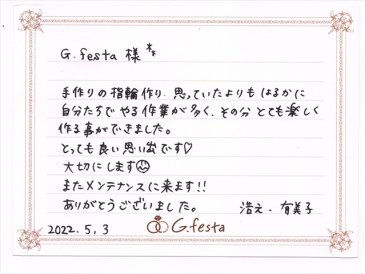 G.festa 様**
手作りの指輪作り、思っていたよりもはるかに
自分たちでやる作業が多く、その分とても楽しく
作る事ができました。
とっても良い思い出です♡
大切にします☺
またメンテナンスに来ます!!
ありがとうございました。 浩之、有美子
2022.5.3 G.festa